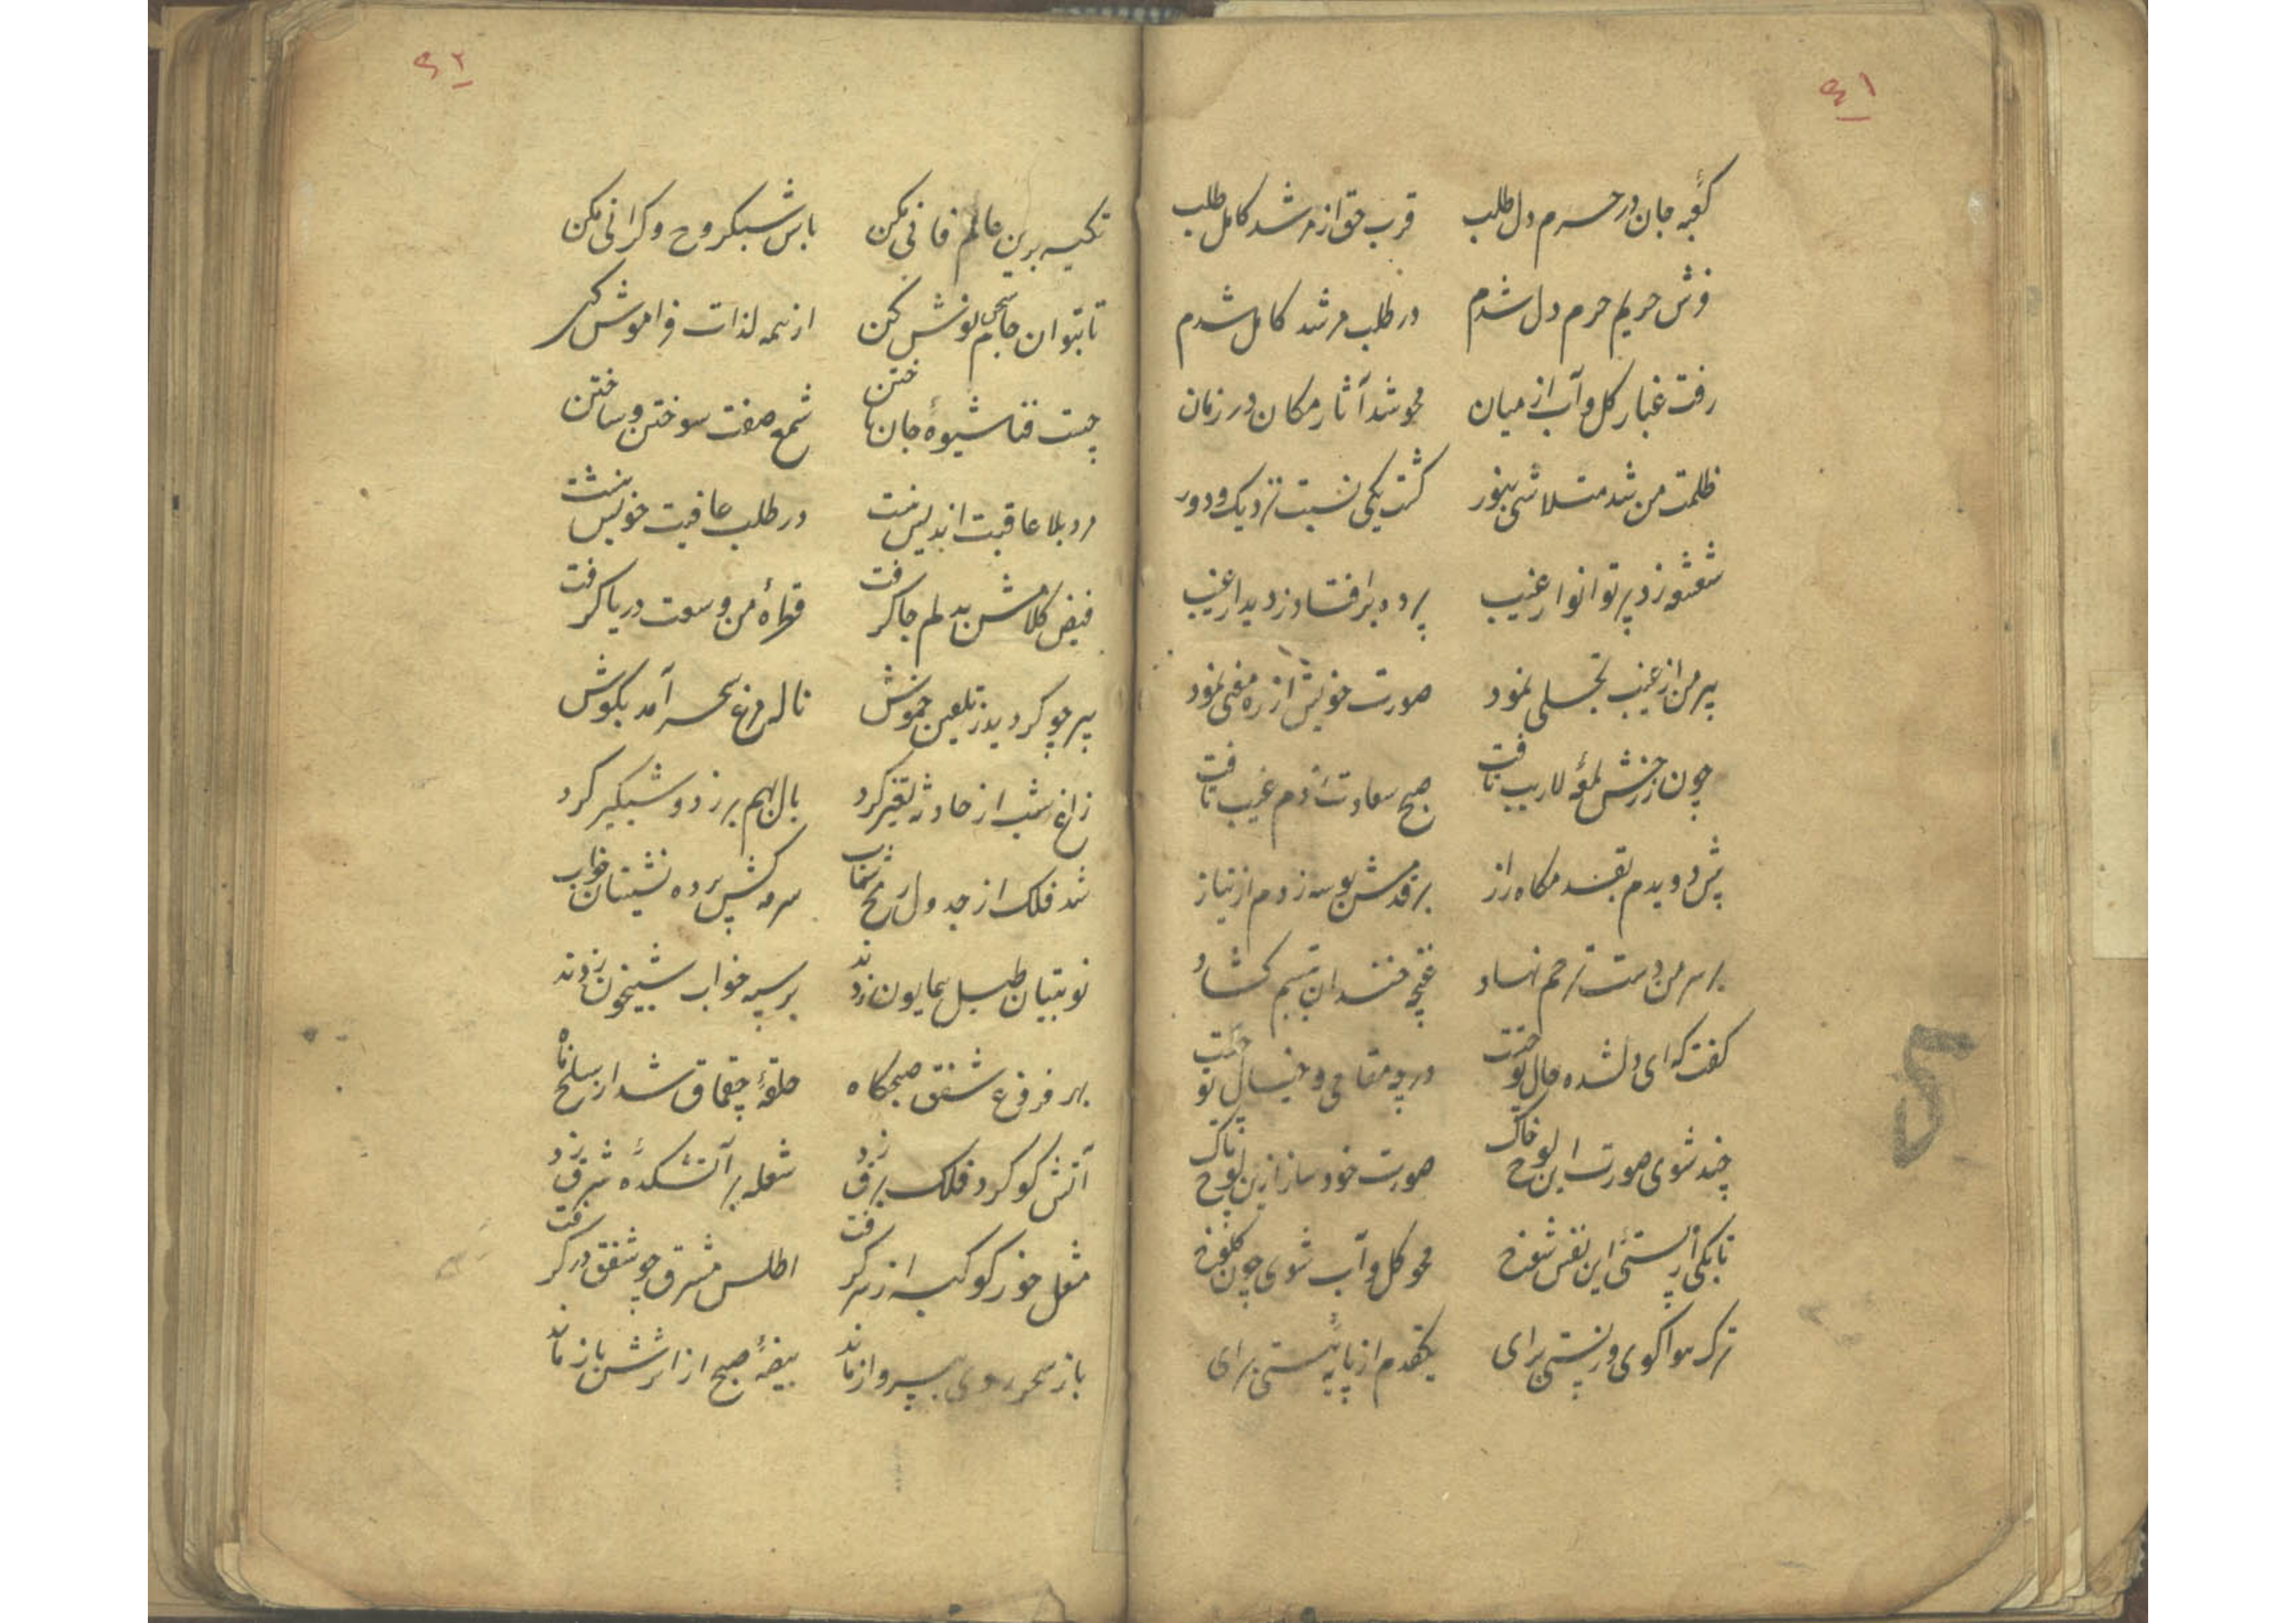 ٤١
کعبهٔ جان در حرم دل طلب قرب حق از مرشد کامل طلب
فرش حریم حرم دل شدم در طلب مرشد کامل شدم
رفت غبار کل و آب از میان محو شد آثار مکان در زمان
ظلمت من شد متلاشی بنور کشت یکی نسبت نزدیک و دور
شعشعه زد پرتو انوار غیب پرده برافتاد ز دیدار غیب
پیر من از غیب تجلی نمود صورت خویش از ره معنی نمود
چون ز رخش لمعهٔ لاریب تافت صبح سعادت ز دم غیب تافت
پیش دویدم بقدمکاه راز بر قدمش بوسه زدم از نیاز
بر سر من دست ترحم نهاد غنچه خندان تبسم کشاد
کفت که ای دلشده حال تو چیست در چه مقامی و خیال تو چیست
چند شوی صورت این لوح خاک صورت خود ساز ازین لوح پاک
تا بکی از پستی این نفس شوخ محو کل و آب شوی چون کلوخ
ترک هوا کوی و ز پستی برای یکقدم از پایهٔ هستی برای
٤٢
تکیه برین عالم فانی مکن باش سبکروح و کرانی مکن
تا بتوان جام سحر نوش کن از همه لذات فراموش کن
چیست فنا شیوهٔ جان باختن شمع صفت سوختن و ساختن
مرد بلا عاقبت اندیش نیست در طلب عافیت خویش نیست
فیض کلامش بدلم جا کرفت قطرهٔ من وسعت دریا کرفت
پیر چو کردید ز تلقین خموش ناله مرغ سحر آمد بکوش
زاغ شب از حادثه تغیر کرد بال بهم بر زد و شبکیر کرد
شد فلک از جدول رمح شهاب سرمه کش پرده نشینان خواب
نوبتیان طبل همایون زدند بر سپه خواب شبیخون زدند
بهر فروغ شفق صبحکاه حلقهٔ چقماق شد از سلخ ماه
آتش کوکرد فلک برق زد شعله بر آتشکدهٔ شرق زد
مشعل خور کوکبه از سر کرفت اطلس مشرق چو شفق در کرفت
باز سحر روی بپرواز ماند بیضهٔ صبح از اثرش باز ماند